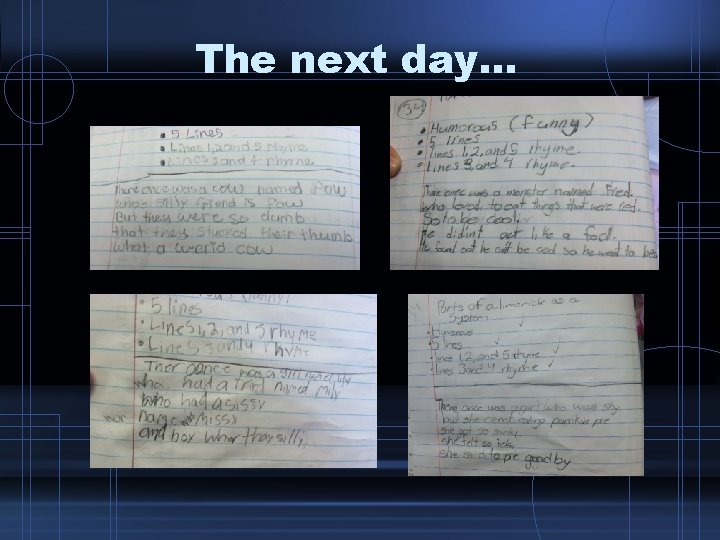 The next day...
• 5 Lines
• Lines 1,2 and 5 rhyme
• Lines 3 and 4 rhyme
There once was a cow named Pow
who's silly friend is Fow
But they were so dumb
that they stucked their thumb
what a werid cow
34
• Humorous (funny)
• 5 lines
• lines 1, 2, and 5 rhyme.
• Lines 3, and 4 rhyme.
There once was a monster named Fred.
who loved to eat things that were red.
So to be cooler
He didint act like a fool.
He found out he be cool so he went to be
• 5 lines
• Lines 1, 2, and 5 rhyme
• Lines 3 and 4 rhyme
Ther oance was a girl named lily
who had a frind named Mily
who had a sissy
nor name was Missy
and boy whar they silly.
Parts of a limerick as a
System
• Humorous
• 5 lines
• lines 1,2 and 5 rhyme
• lines 3 and 4 rhyme
There once was a girl who was shy,
but she eating pumkin pie
she got so sicky
she felt so icky
she said to pie good by